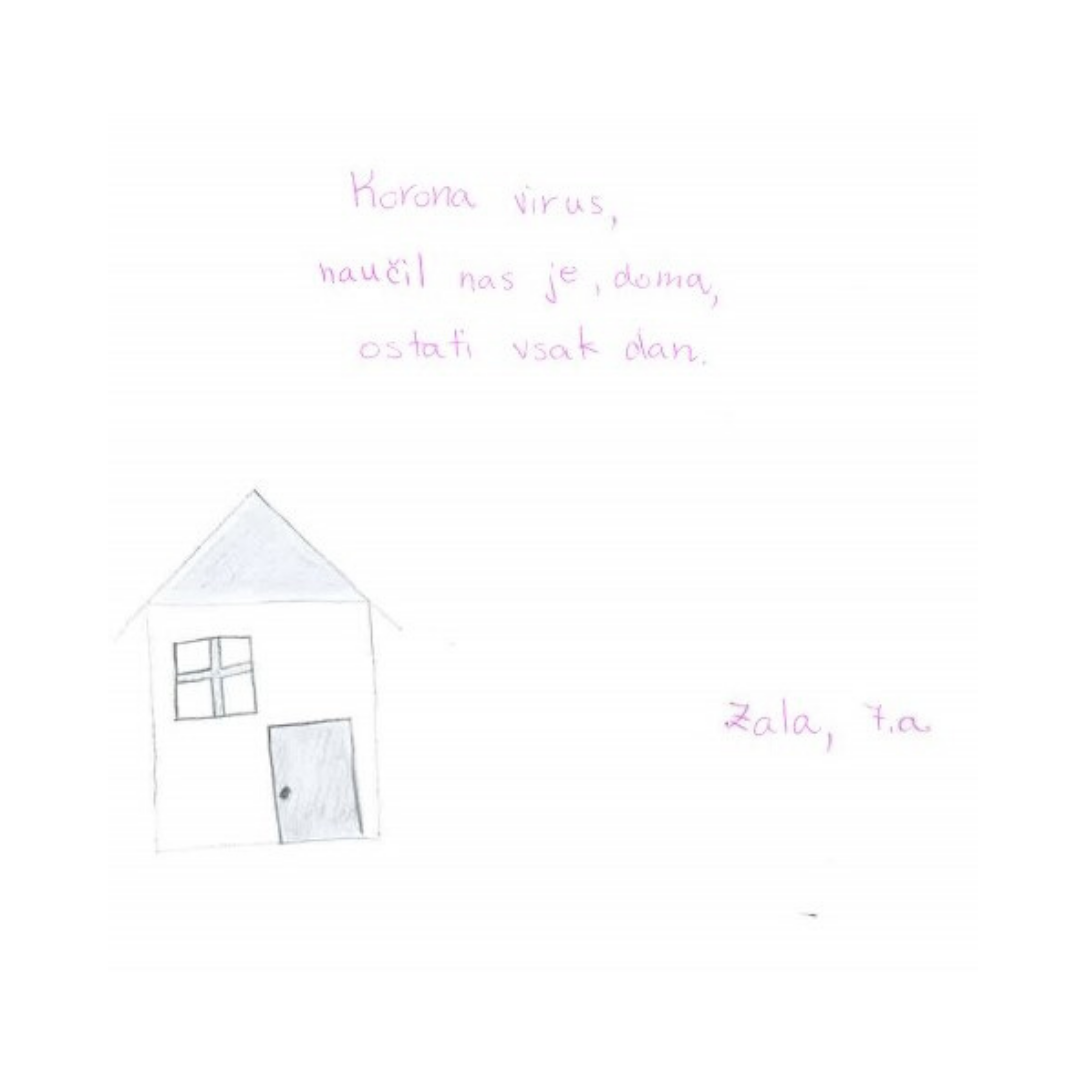 Korona virus,
naučil nas je, doma,
ostati vsak dan.
Zala, 7.a